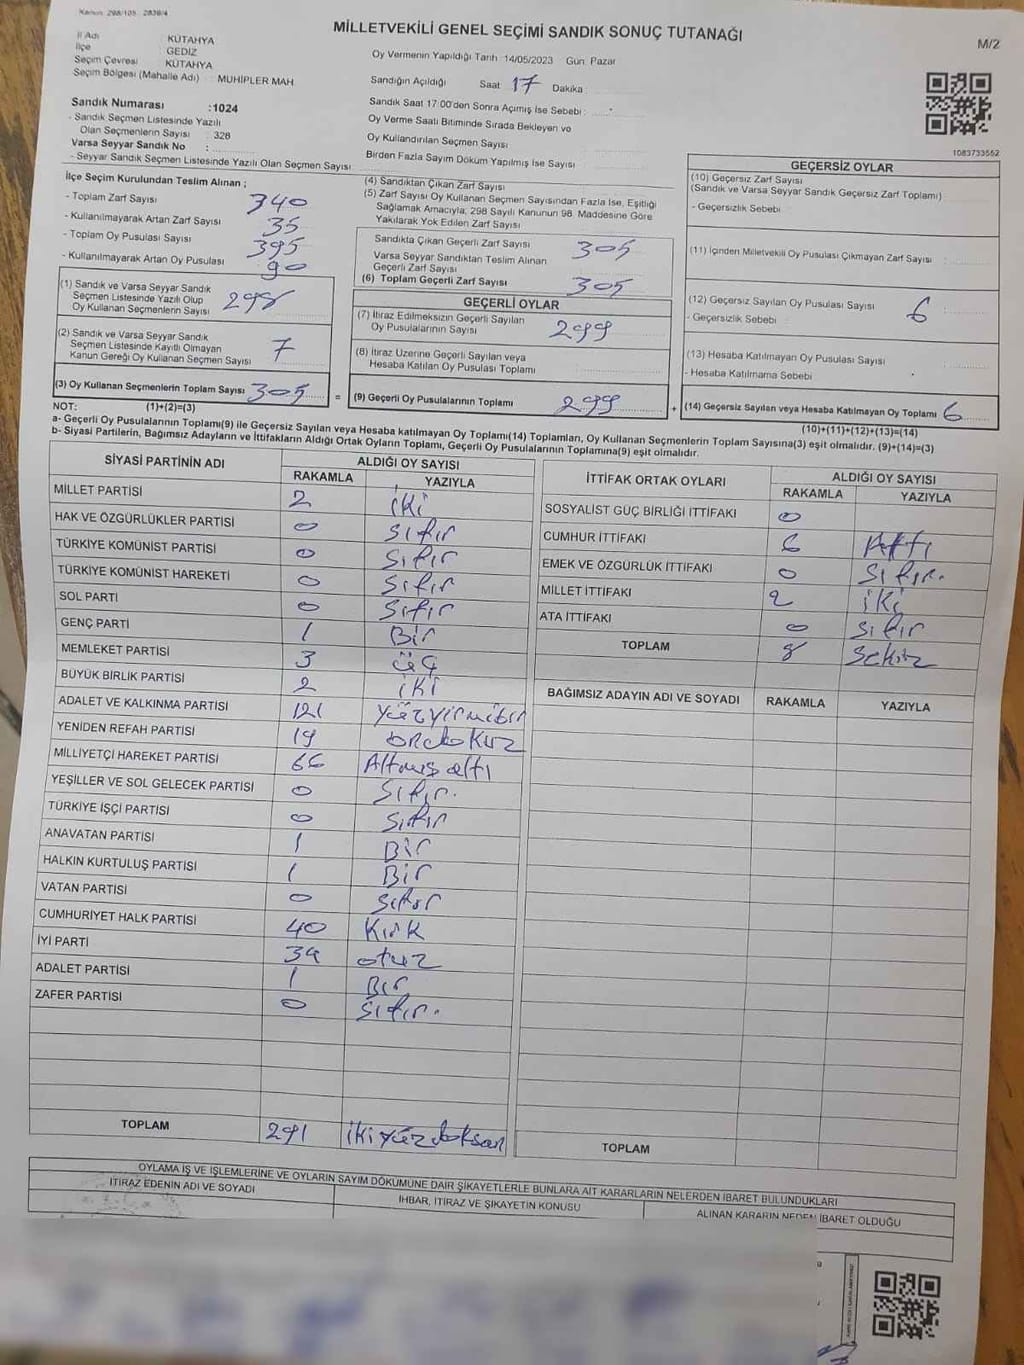 Kanun: 298/105 2839/4
MİLLETVEKİLİ GENEL SEÇİMİ SANDIK SONUÇ TUTANAĞI
M/2
İl Adı : KÜTAHYA
İlçe : GEDİZ
Seçim Çevresi : KÜTAHYA
Seçim Bölgesi (Mahalle Adı) : MUHİPLER MAH
Oy Vermenin Yapıldığı Tarih : 14/05/2023 Gün: Pazar
Sandığın Açıldığı Saat 17 Dakika :
Sandık Saat 17:00'den Sonra Açılmış İse Sebebi :
Oy Verme Saati Bitiminde Sırada Bekleyen ve
Oy Kullandırılan Seçmen Sayısı
Birden Fazla Sayım Döküm Yapılmış İse Sayısı
Sandık Numarası :1024
- Sandık Seçmen Listesinde Yazılı
Olan Seçmenlerin Sayısı : 328
Varsa Seyyar Sandık No :
- Seyyar Sandık Seçmen Listesinde Yazılı Olan Seçmen Sayısı
1083733552
İlçe Seçim Kurulundan Teslim Alınan ;
- Toplam Zarf Sayısı 340
- Kullanılmayarak Artan Zarf Sayısı 35
- Toplam Oy Pusulası Sayısı 395
- Kullanılmayarak Artan Oy Pusulası 90
(1) Sandık ve Varsa Seyyar Sandık
Seçmen Listesinde Yazılı Olup
Oy Kullanan Seçmenlerin Sayısı 298
(2) Sandık ve Varsa Seyyar Sandık
Seçmen Listesinde Kayıtlı Olmayan
Kanun Gereği Oy Kullanan Seçmen Sayısı 7
(3) Oy Kullanan Seçmenlerin Toplam Sayısı 305
(4) Sandıktan Çıkan Zarf Sayısı
(5) Zarf Sayısı Oy Kullanan Seçmen Sayısından Fazla İse, Eşitliği
Sağlamak Amacıyla, 298 Sayılı Kanunun 98. Maddesine Göre
Yakılarak Yok Edilen Zarf Sayısı
Sandıkta Çıkan Geçerli Zarf Sayısı 305
Varsa Seyyar Sandıktan Teslim Alınan
Geçerli Zarf Sayısı
(6) Toplam Geçerli Zarf Sayısı 305
GEÇERLİ OYLAR
(7) İtiraz Edilmeksizin Geçerli Sayılan
Oy Pusulalarının Sayısı 299
(8) İtiraz Üzerine Geçerli Sayılan veya
Hesaba Katılan Oy Pusulası Toplamı
= (9) Geçerli Oy Pusulalarının Toplamı 299
GEÇERSİZ OYLAR
(10) Geçersiz Zarf Sayısı
(Sandık ve Varsa Seyyar Sandık Geçersiz Zarf Toplamı)
- Geçersizlik Sebebi
(11) İçinden Milletvekili Oy Pusulası Çıkmayan Zarf Sayısı
(12) Geçersiz Sayılan Oy Pusulası Sayısı 6
- Geçersizlik Sebebi
(13) Hesaba Katılmayan Oy Pusulası Sayısı
- Hesaba Katılmama Sebebi
+ (14) Geçersiz Sayılan veya Hesaba Katılmayan Oy Toplamı 6
NOT: (1)+(2)=(3)
(10)+(11)+(12)+(13)=(14)
a- Geçerli Oy Pusulalarının Toplamı(9) ile Geçersiz Sayılan veya Hesaba katılmayan Oy Toplamı(14) Toplamları, Oy Kullanan Seçmenlerin Toplam Sayısına(3) eşit olmalıdır. (9)+(14)=(3)
b- Siyasi Partilerin, Bağımsız Adayların ve İttifakların Aldığı Ortak Oyların Toplamı, Geçerli Oy Pusulalarının Toplamına(9) eşit olmalıdır.
SİYASİ PARTİNİN ADI ALDIĞI OY SAYISI
RAKAMLA YAZIYLA
MİLLET PARTİSİ 2 iki
HAK VE ÖZGÜRLÜKLER PARTİSİ 0 sıfır
TÜRKİYE KOMÜNİST PARTİSİ 0 sıfır
TÜRKİYE KOMÜNİST HAREKETİ 0 sıfır
SOL PARTİ 0 sıfır
GENÇ PARTİ 1 Bir
MEMLEKET PARTİSİ 3 üç
BÜYÜK BİRLİK PARTİSİ 2 iki
ADALET VE KALKINMA PARTİSİ 121 yüzyirmibir
YENİDEN REFAH PARTİSİ 19 ondokuz
MİLLİYETÇİ HAREKET PARTİSİ 66 Altmışaltı
YEŞİLLER VE SOL GELECEK PARTİSİ 0 sıfır.
TÜRKİYE İŞÇİ PARTİSİ 0 sıfır
ANAVATAN PARTİSİ 1 Bir
HALKIN KURTULUŞ PARTİSİ 1 Bir
VATAN PARTİSİ 0 sıfır
CUMHURİYET HALK PARTİSİ 40 Kırk
İYİ PARTİ otuz
ADALET PARTİSİ 1 Bir
ZAFER PARTİSİ 0 sıfır.
TOPLAM 291 ikiyüzdoksan
İTTİFAK ORTAK OYLARI ALDIĞI OY SAYISI
RAKAMLA YAZIYLA
SOSYALİST GÜÇ BİRLİĞİ İTTİFAKI 0
CUMHUR İTTİFAKI 6 Altı
EMEK VE ÖZGÜRLÜK İTTİFAKI 0 sıfır.
MİLLET İTTİFAKI 2 iki
ATA İTTİFAKI 0 sıfır
TOPLAM 8 Sekiz
BAĞIMSIZ ADAYIN ADI VE SOYADI RAKAMLA YAZIYLA
TOPLAM
OYLAMA İŞ VE İŞLEMLERİNE VE OYLARIN SAYIM DÖKÜMÜNE DAİR ŞİKAYETLERLE BUNLARA AİT KARARLARIN NELERDEN İBARET BULUNDUKLARI
İTİRAZ EDENİN ADI VE SOYADI İHBAR, İTİRAZ VE ŞİKAYETİN KONUSU ALINAN KARARIN NEDEN İBARET OLDUĞU